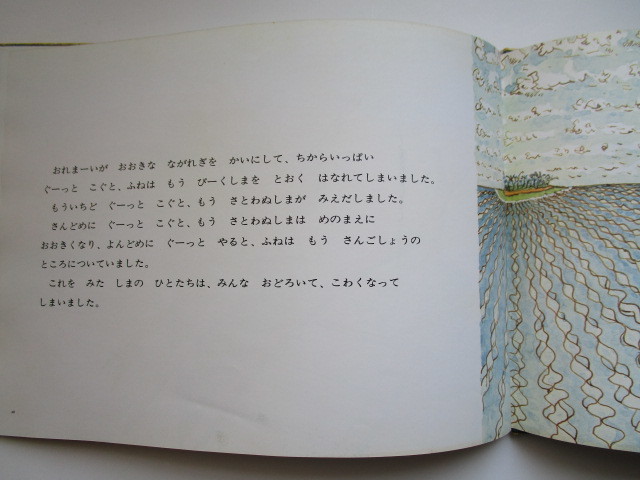 おれまーいが　おおきな　ながれぎを　かいにして、ちからいっぱい
ぐーっと　こぐと、ふねは　もう　びーくしまを　とおく　はなれてしまいました。
もういちど　ぐーっと　こぐと、もう　さとわぬしまが　みえだしました。
さんどめに　ぐーっと　こぐと、もう　さとわぬしまは　めのまえに
おおきくなり、よんどめに　ぐーっと　やると、ふねは　もう　さんごしょうの
ところについていました。
これを　みた　しまの　ひとたちは、みんな　おどろいて、こわくなって
しまいました。